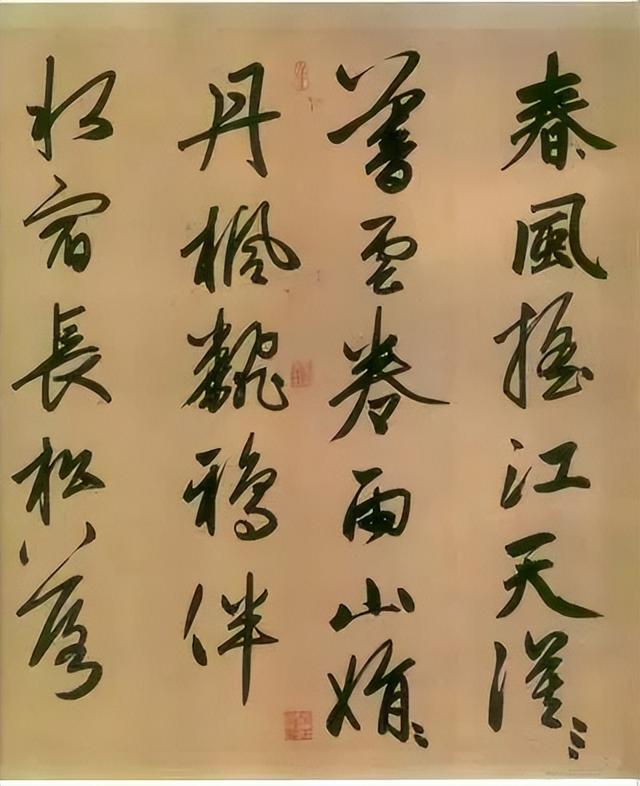 春風搖江天漠〻
暮雲卷雨山娟〻
丹楓翻鴉伴
水宿長松落